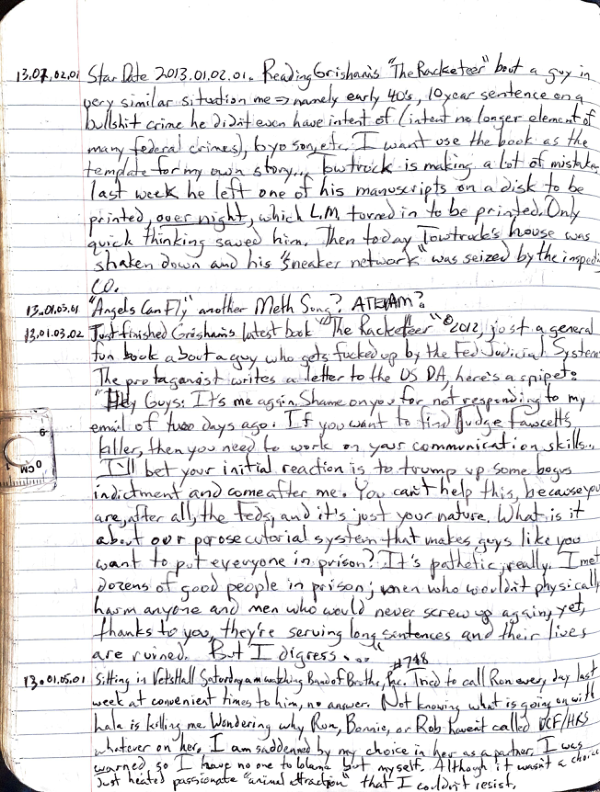 13.01.02.01 Star Date 2013.01.02.01. Reading Grisham's "The Racketeer" bout a guy in
very similar situation me => namely early 40's, 10 year sentence on a
bullshit crime he didn't even have intent of (intent no longer element of
many federal crimes), 6 yo son, etc. I want use the book as the
template for my own story... Towtruck is making a lot of mistakes
last week he left one of his manuscripts on a disk to be
printed, over night, which L.M turned in to be printed. Only
quick thinking saved him. Then today Towtruck's house was
shaken down and his "sneaker network" was seized by the inspecti
CO.
13.01.03.01 "Angels Can Fly" another Meth Song?
13.01.03.02 Just finished Grisham's latest book "The Racketeer" ©2012, just a general
fun book about a guy who gets fucked up by the Fed Judicial System
The protaganist writes a letter to the US DA, here's a snipet:
"Hey Guys: It's me again. Shame on you for not responding to my
email of two days ago. If you want to find Judge Fawcetts
killer, then you need to work on your communication skills...
I'll bet your initial reaction is to trump up some bogus
indictment and come after me. You can't help this, because you
are, after all, the feds, and it's just your nature. What is it
about our porosecutorial system that makes guys like you
want to put everyone in prison? It's pathetic, really. I met
dozens of good people in prison; men who wouldn't physically
harm anyone and men who would never screw up again, yet,
thanks to you, they're serving long sentences and their lives
are ruined. But I digress..."
#748
13.01.05.01 Sitting in Vets Hall Saturday am watching Band of Brothe, Inc. Tried to call Ron every day last
week at convenient times to him, no answer. Not knowing what is going on with
Lala is killing me. Wondering why Ron, Bonnie, or Rob havent called DCF/HRS
whatever on her. I am saddened by my choice in her as a partner. I was
warned so I have no one to blame but myself. Although it wasn't a choice
Just heated passionate "animal attraction" that I couldn't resist.